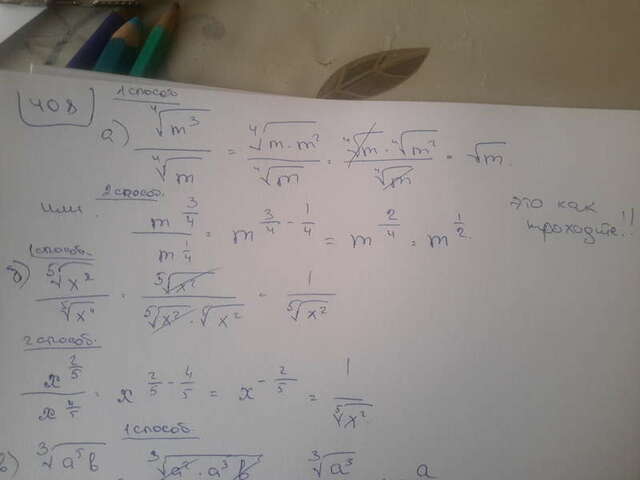 408
1 способ
а) ⁴√m³ / ⁴√m = ⁴√(m · m²) / ⁴√m = ⁴√m · ⁴√m² / ⁴√m = √m.
или.
2 способ.
m^(3/4) / m^(1/4) = m^(3/4 - 1/4) = m^(2/4) = m^(1/2).
это как
проходите!!
1 способ.
б) ⁵√x² / ⁵√x⁴ = ⁵√x² / ⁵√x² · ⁵√x² = 1 / ⁵√x²
2 способ.
x^(2/5) / x^(4/5) = x^(2/5 - 4/5) = x^(-2/5) = 1 / ⁵√x²
1 способ.
в) ³√a⁵b ³√(a² · a³ b) ³√a³ a